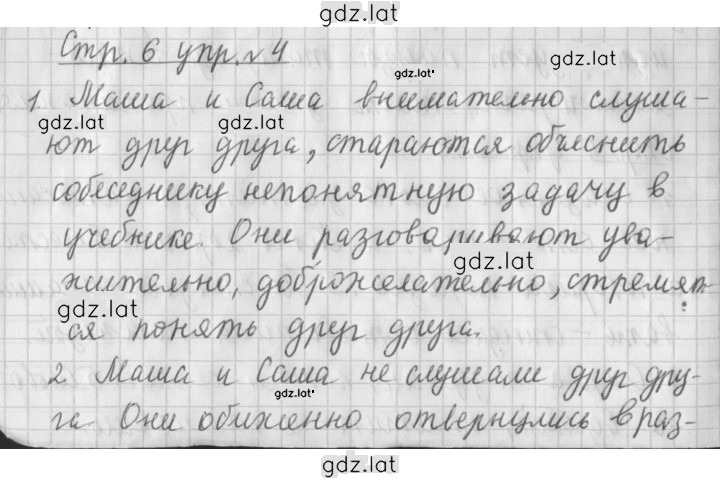 gdz.lat
Стр. 6 упр. № 4
gdz.lat
1. Маша и Саша внимательно слуша-
gdz.lat gdz.lat
ют друг друга, стараются объеснить
собеседнику непонятную задачу в
учебнике. Они разговаривают ува-
gdz.lat
жительно, доброжелательно, стремят-
gdz.lat
ся понять друг друга.
2. Маша и Саша не слушали друг дру-
gdz.lat
га. Они обиженно отвернулись в раз-
gdz.lat